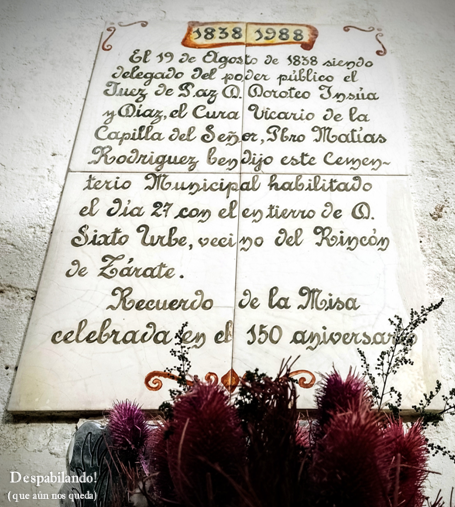 1838 1988
El 19 de Agosto de 1838 siendo
delegado del poder público el
Juez de Paz D. Doroteo Insúa
y Diaz, el Cura Vicario de la
Capilla del Señor, Pbro Matías
Rodriguez bendijo este Cemen-
terio Municipal habilitado
el día 27 con el entierro de D.
Sixto Urbe, vecino del Rincón
de Zárate.
Recuerdo de la Misa
celebrada en el 150 aniversario
Despabilando!
(que aún nos queda)